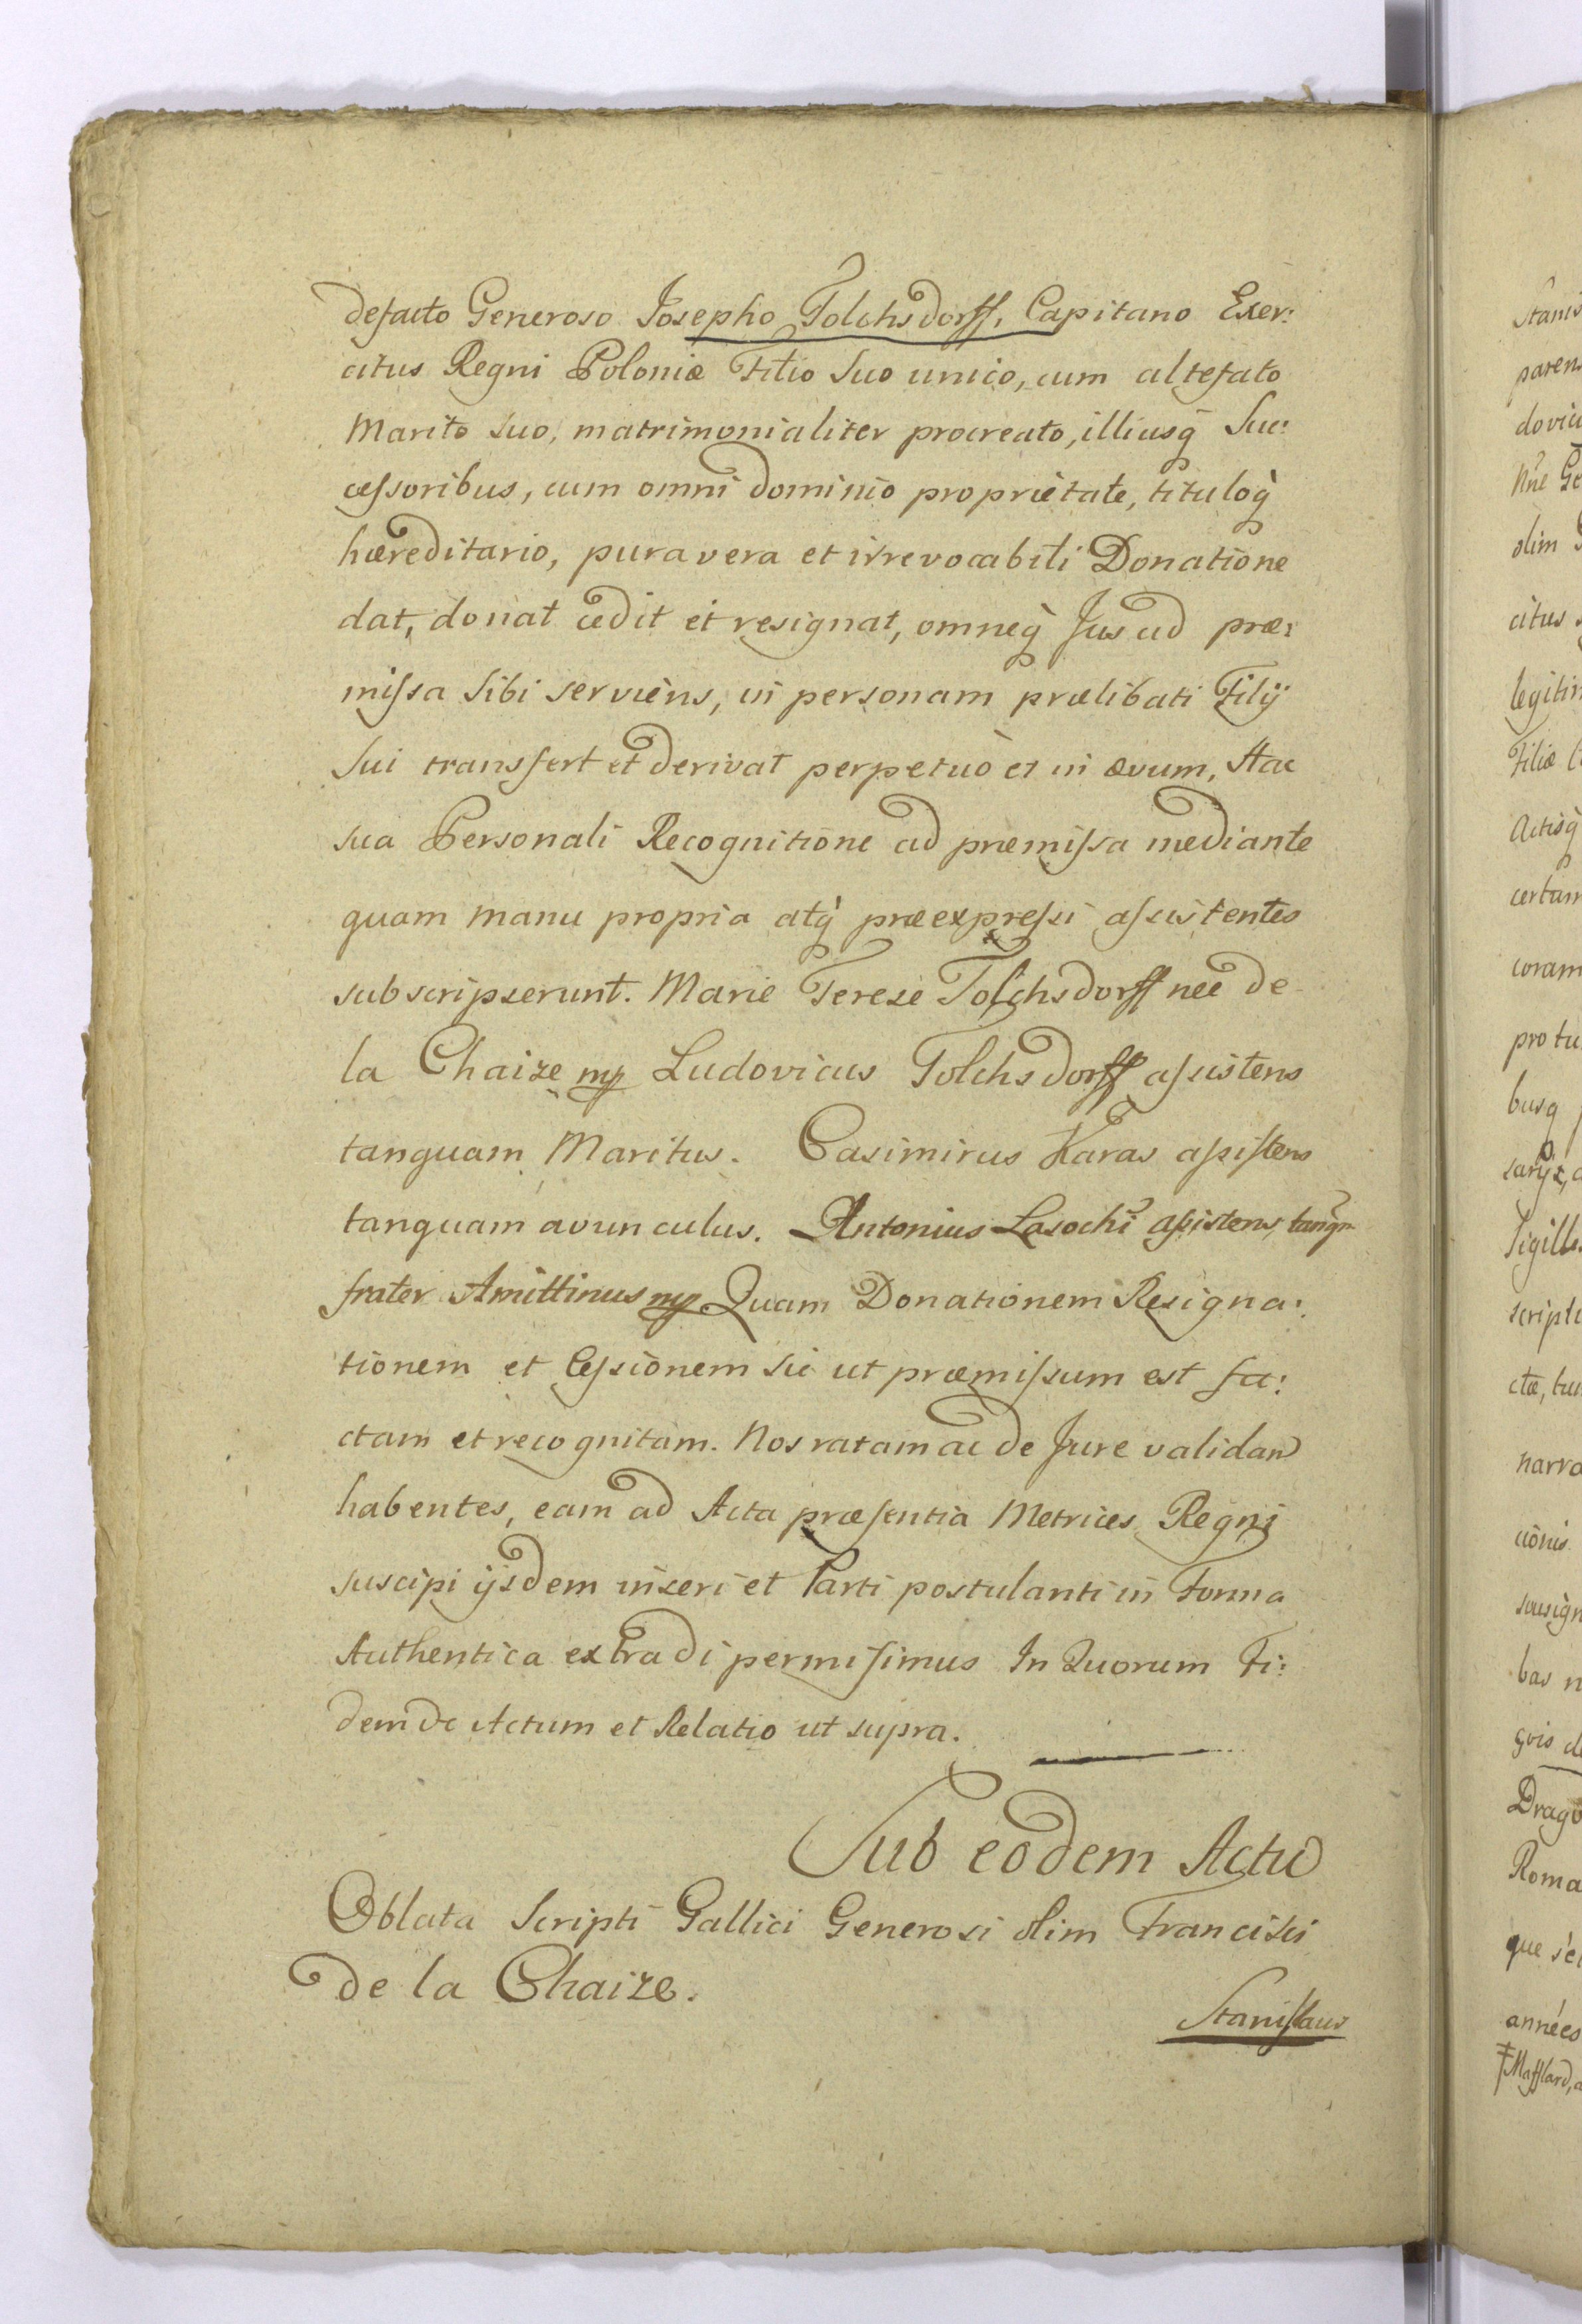 defacto Generoso Josepho Tolchsdorff, Capitano Exer:
citus Regni Poloniæ Filio Suo unico, cum altefato
Marito Suo, matrimonialiter procreato, illiusq̀ Suc:
cessoribus, cum omni dominio proprietate, tituloq̀
hæreditario, pura vera et irrevocabili Donatione
dat, donat cedit et resignat, omneq̀ Jus ad præ:
missa Sibi serviens, in personam prælibati Filij
Sui transfert et derivat perpetuò et in ævum, Hac
sua Personali Recognitione ad præmissa mediante
quam manu propria atq̀ præexpressi assistentes
subscripserunt. Marie Terese Tolchsdorff neé de
la Chaize mp Ludovicus Tolchsdorff assistens
tanquam Maritus. Casimirus Karas assistens
tanquam avunculus. Antonius Lasocki assistens tanqm
frater Amittinus mp Quam Donationem Resigna:
tionem et Cessionem sic ut præmissum est fa:
ctam et recognitam. Nos ratam ac de Jure validam
habentes, eam ad Acta præsentia Metrices Regni
suscipi ijsdem inseri et Parti postulanti in Forma
Authentica extradi permisimus In Quorum Fi:
dem &c Actum et Relatio ut supra.
Sub eodem Actu
Oblata Scripti Gallici Generosi olim Francisci
de la Chaize.
Stanislaus
Stanis
paren
dovic
Nne Ge
olim
citus
legitim
Filiæ
Actisq̀
certam
coram
pro tu
busq
sarijs,
Sigill
script
ctæ, tu
narra
cionis
sousign
bas
gois de
Drago
Roma
que s'e
années
Mafflard,